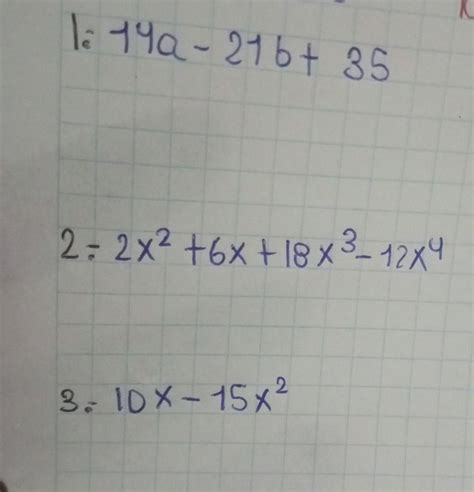 1: 14a - 21b + 35
2- 2x² + 6x + 18x³ - 12x⁴
3- 10x - 15x²